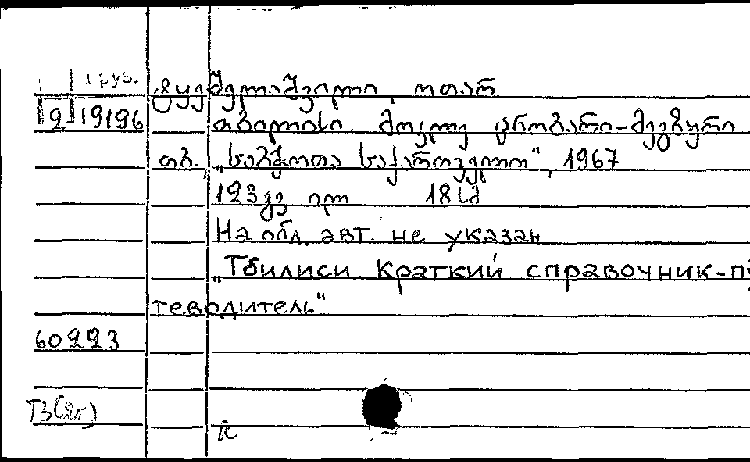 Груз.
ტყეშელაშვილი, ოთარ
2 19196
თბილისი მოკლე ცნობარი-მეგზური
თბ. „საბჭოთა საქართველო", 1967
123გვ ილ 18სმ
На обл. авт. не указан
„Тбилиси краткий справочник-пу
теводитель"
60223
к